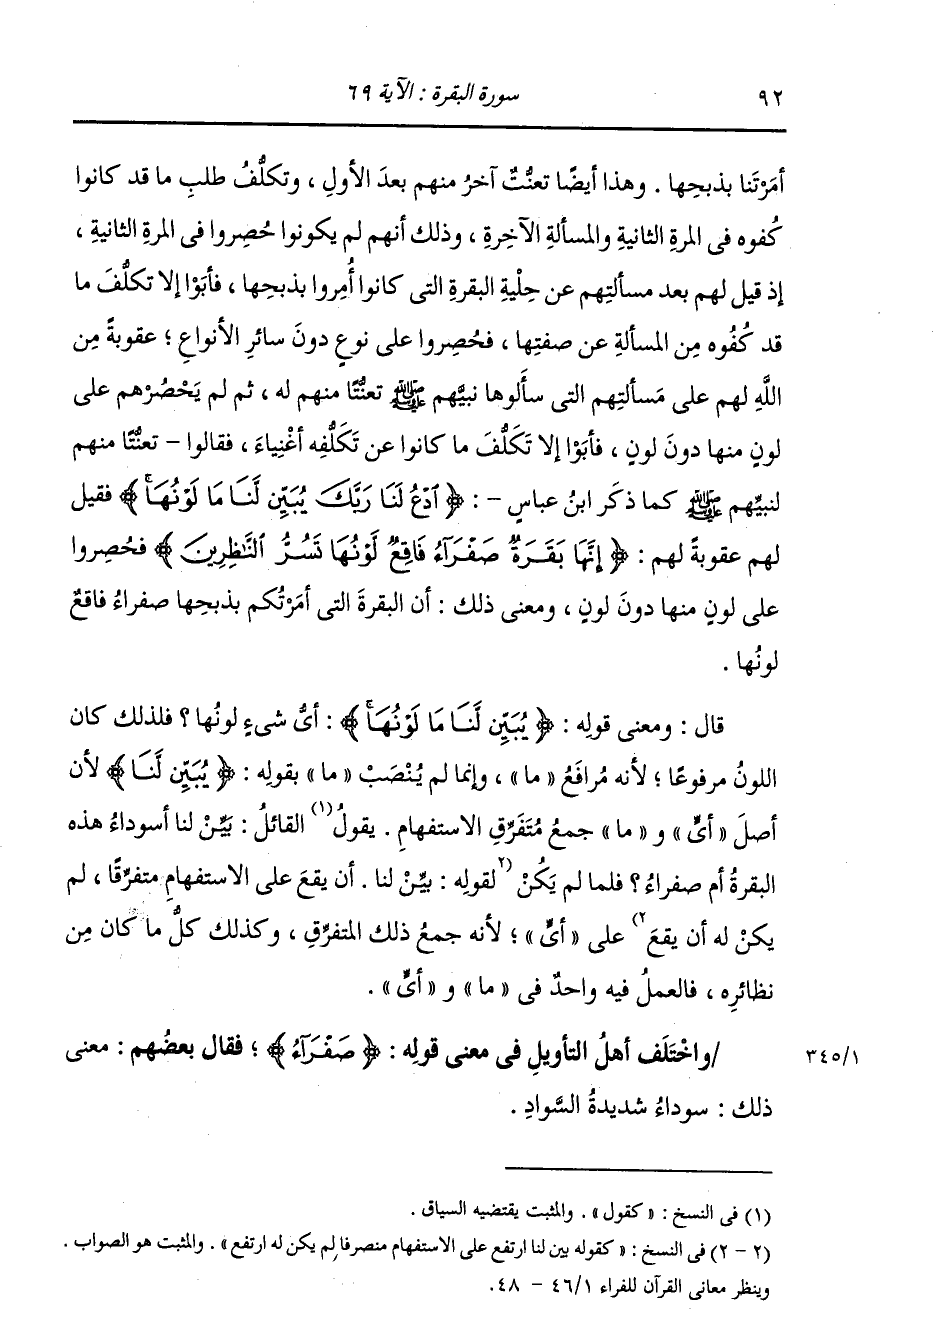 ٩٢ سورة البقرة : الآية ٦٩
أمَرْتَنا بذبحِها . وهذا أيضًا تعنُّتٌ آخرُ منهم بعدَ الأولِ ، وتكلُّفُ طلبِ ما قد كانوا
كُفوه فى المرةِ الثانيةِ والمسألةِ الآخِرةِ ، وذلك أنهم لم يكونوا حُصِروا فى المرةِ الثانيةِ ،
إذ قيل لهم بعد مسألتِهم عن حِلْيةِ البقرةِ التى كانوا أُمِروا بذبحِها ، فأبَوْا إلا تكلُّفَ ما
قد كُفُوه مِن المسألةِ عن صفتِها ، فحُصِروا على نوعٍ دونَ سائرِ الأنواعِ ؛ عقوبةً مِن
اللَّهِ لهم على مَسألتِهم التى سأَلوها نبيَّهم ﷺ تعنُّتًا منهم له ، ثم لم يَحْصُرْهم على
لونٍ منها دونَ لونٍ ، فأبَوْا إلا تَكَلُّفَ ما كانوا عن تَكَلُّفِه أغْنِياءَ ، فقالوا - تعنُّتًا منهم
لنبيِّهم ﷺ كما ذكَر ابنُ عباسٍ - : ﴿ ٱدْعُ لَنَا رَبَّكَ يُبَيِّن لَّنَا مَا لَوْنُهَاۚ ﴾ فقيل
لهم عقوبةً لهم : ﴿ إِنَّهَا بَقَرَةٌ صَفْرَآءُ فَاقِعٌ لَّوْنُهَا تَسُرُّ ٱلنَّٰظِرِينَ ﴾ فحُصِروا
على لونٍ منها دونَ لونٍ ، ومعنى ذلك : أن البقرةَ التى أمَرْتُكم بذبحِها صفراءُ فاقعٌ
لونُها .
قال : ومعنى قولِه : ﴿ يُبَيِّن لَّنَا مَا لَوْنُهَاۚ ﴾ : أىُّ شىءٍ لونُها ؟ فلذلك كان
اللونُ مرفوعًا ؛ لأنه مُرافعُ « ما » ، وإنما لم يُنْصَبْ « ما » بقولِه : ﴿ يُبَيِّن لَّنَا ﴾ لأن
أصلَ « أىٍّ » و « ما » جمعُ مُتَفَرِّقِ الاستفهامِ . يقولُ(١) القائلُ : بَيِّنْ لنا أسوداءُ هذه
البقرةُ أم صفراءُ ؟ فلما لم يَكُنْ (٢لقولِه : بيِّنْ لنا . أن يقعَ على الاستفهامِ متفرِّقًا ، لم
يكنْ له أن يقعَ٢) على « أىٍّ » ؛ لأنه جمعُ ذلك المتفرِّقِ ، وكذلك كلُّ ما كان مِن
نظائرِه ، فالعملُ فيه واحدٌ فى « ما » و « أىٍّ » .
٣٤٥/١ /واخْتَلَف أهلُ التأويلِ فى معنى قولِه : ﴿ صَفْرَآءُ ﴾ ؛ فقال بعضُهم : معنى
ذلك : سوداءُ شديدةُ السَّوادِ .
(١) فى النسخ : « كقول » . والمثبت يقتضيه السياق .
(٢ - ٢) فى النسخ : « كقوله بين لنا ارتفع على الاستفهام منصرفا لم يكن له ارتفع » . والمثبت هو الصواب .
وينظر معانى القرآن للفراء ٤٦/١ - ٤٨.